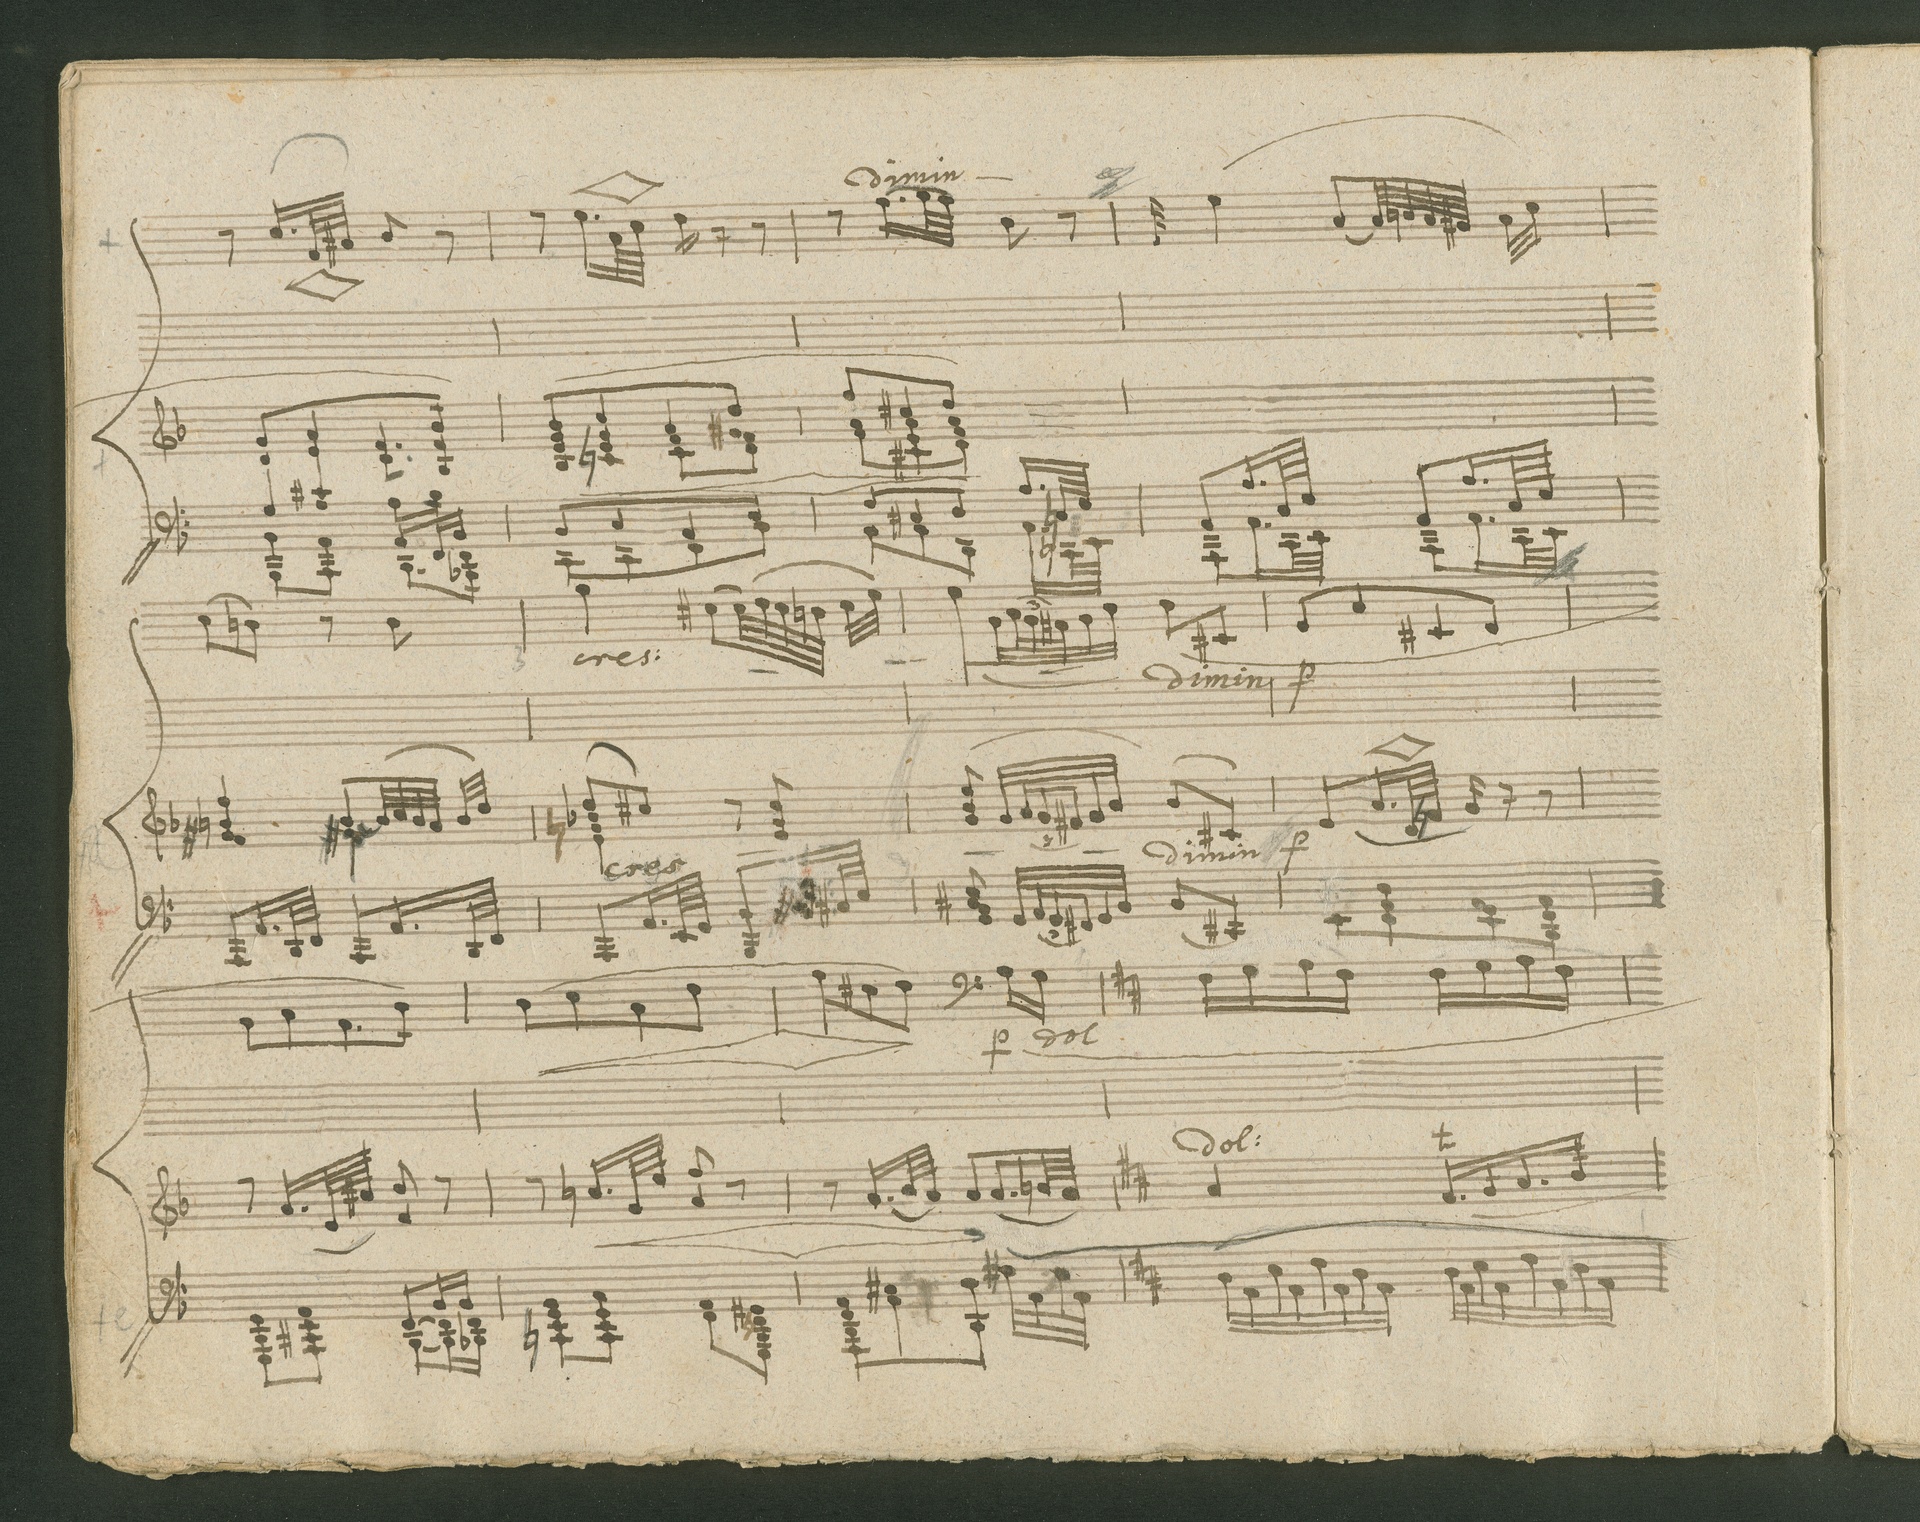 dimin
cres:
dimin p
cres
dimin p
p dol
dol: